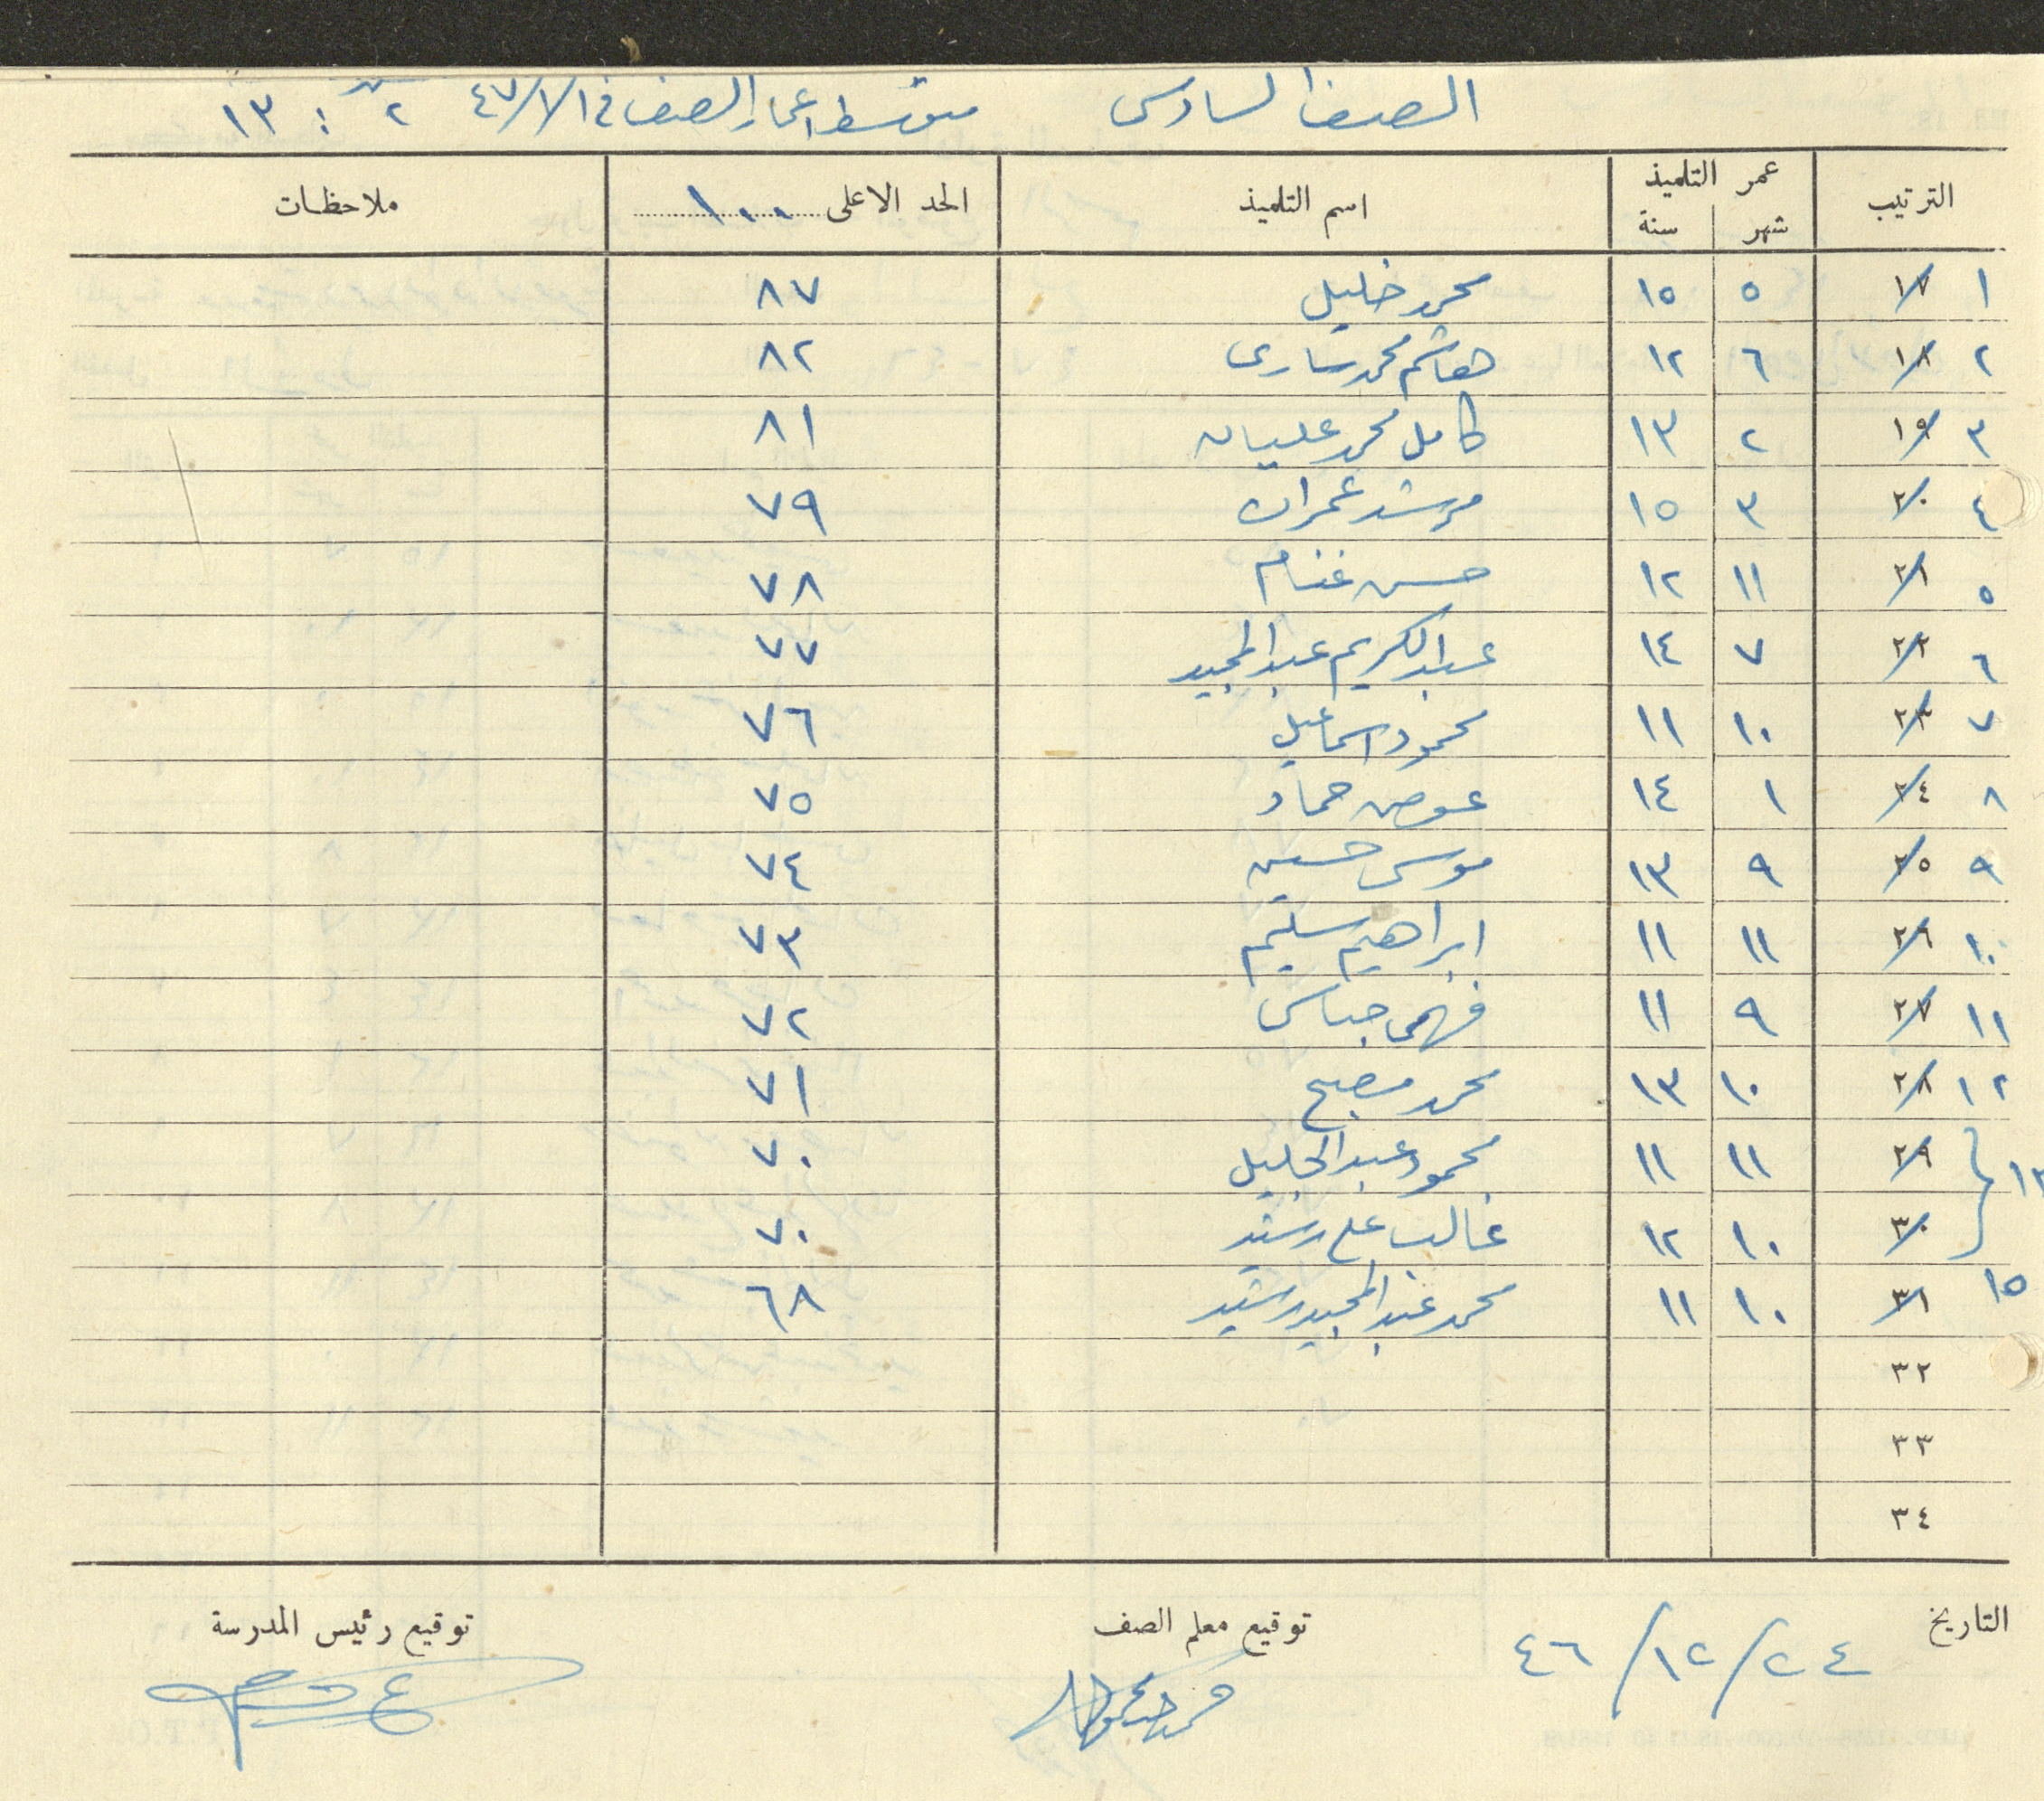 الصف السادس متوسط اعمار الصف في ١/١/٤٧ ٢ : ١٣
الترتيب عمر التلميذ اسم التلميذ الحد الاعلى ١٠٠ ملاحظات
شهر سنة
١ ١٧ ٥ ١٥ محمد خليل ٨٧
٢ ١٨ ٦ ١٢ هاشم محمد ساري ٨٢
٣ ١٩ ٢ ١٣ كامل محمد عليان ٨١
٤ ٢٠ ٣ ١٥ مرشد عمران ٧٩
٥ ٢١ ١١ ١٢ حسن غنام ٧٨
٦ ٢٢ ٧ ١٤ عبد الكريم عبد المجيد ٧٧
٧ ٢٣ ١٠ ١١ محمود اسماعيل ٧٦
٨ ٢٤ ١ ١٤ عوض حماد ٧٥
٩ ٢٥ ٩ ١٣ موسى حسين ٧٤
١٠ ٢٦ ١١ ١١ ابراهيم سليم ٧٣
١١ ٢٧ ٩ ١١ فهمي عباس ٧٢
١٢ ٢٨ ١٠ ١٣ محمد مصبح ٧١
١٣ ٢٩ ١١ ١١ محمود عبد الجليل ٧٠
٣٠ ١٠ ١٢ غالب علي رشيد ٧٠
١٥ ٣١ ١٠ ١١ محمد عبد المجيد رشيد ٦٨
٣٢
٣٣
٣٤
التاريخ ٢٤/١٢/٤٦ توقيع معلم الصف توقيع رئيس المدرسة